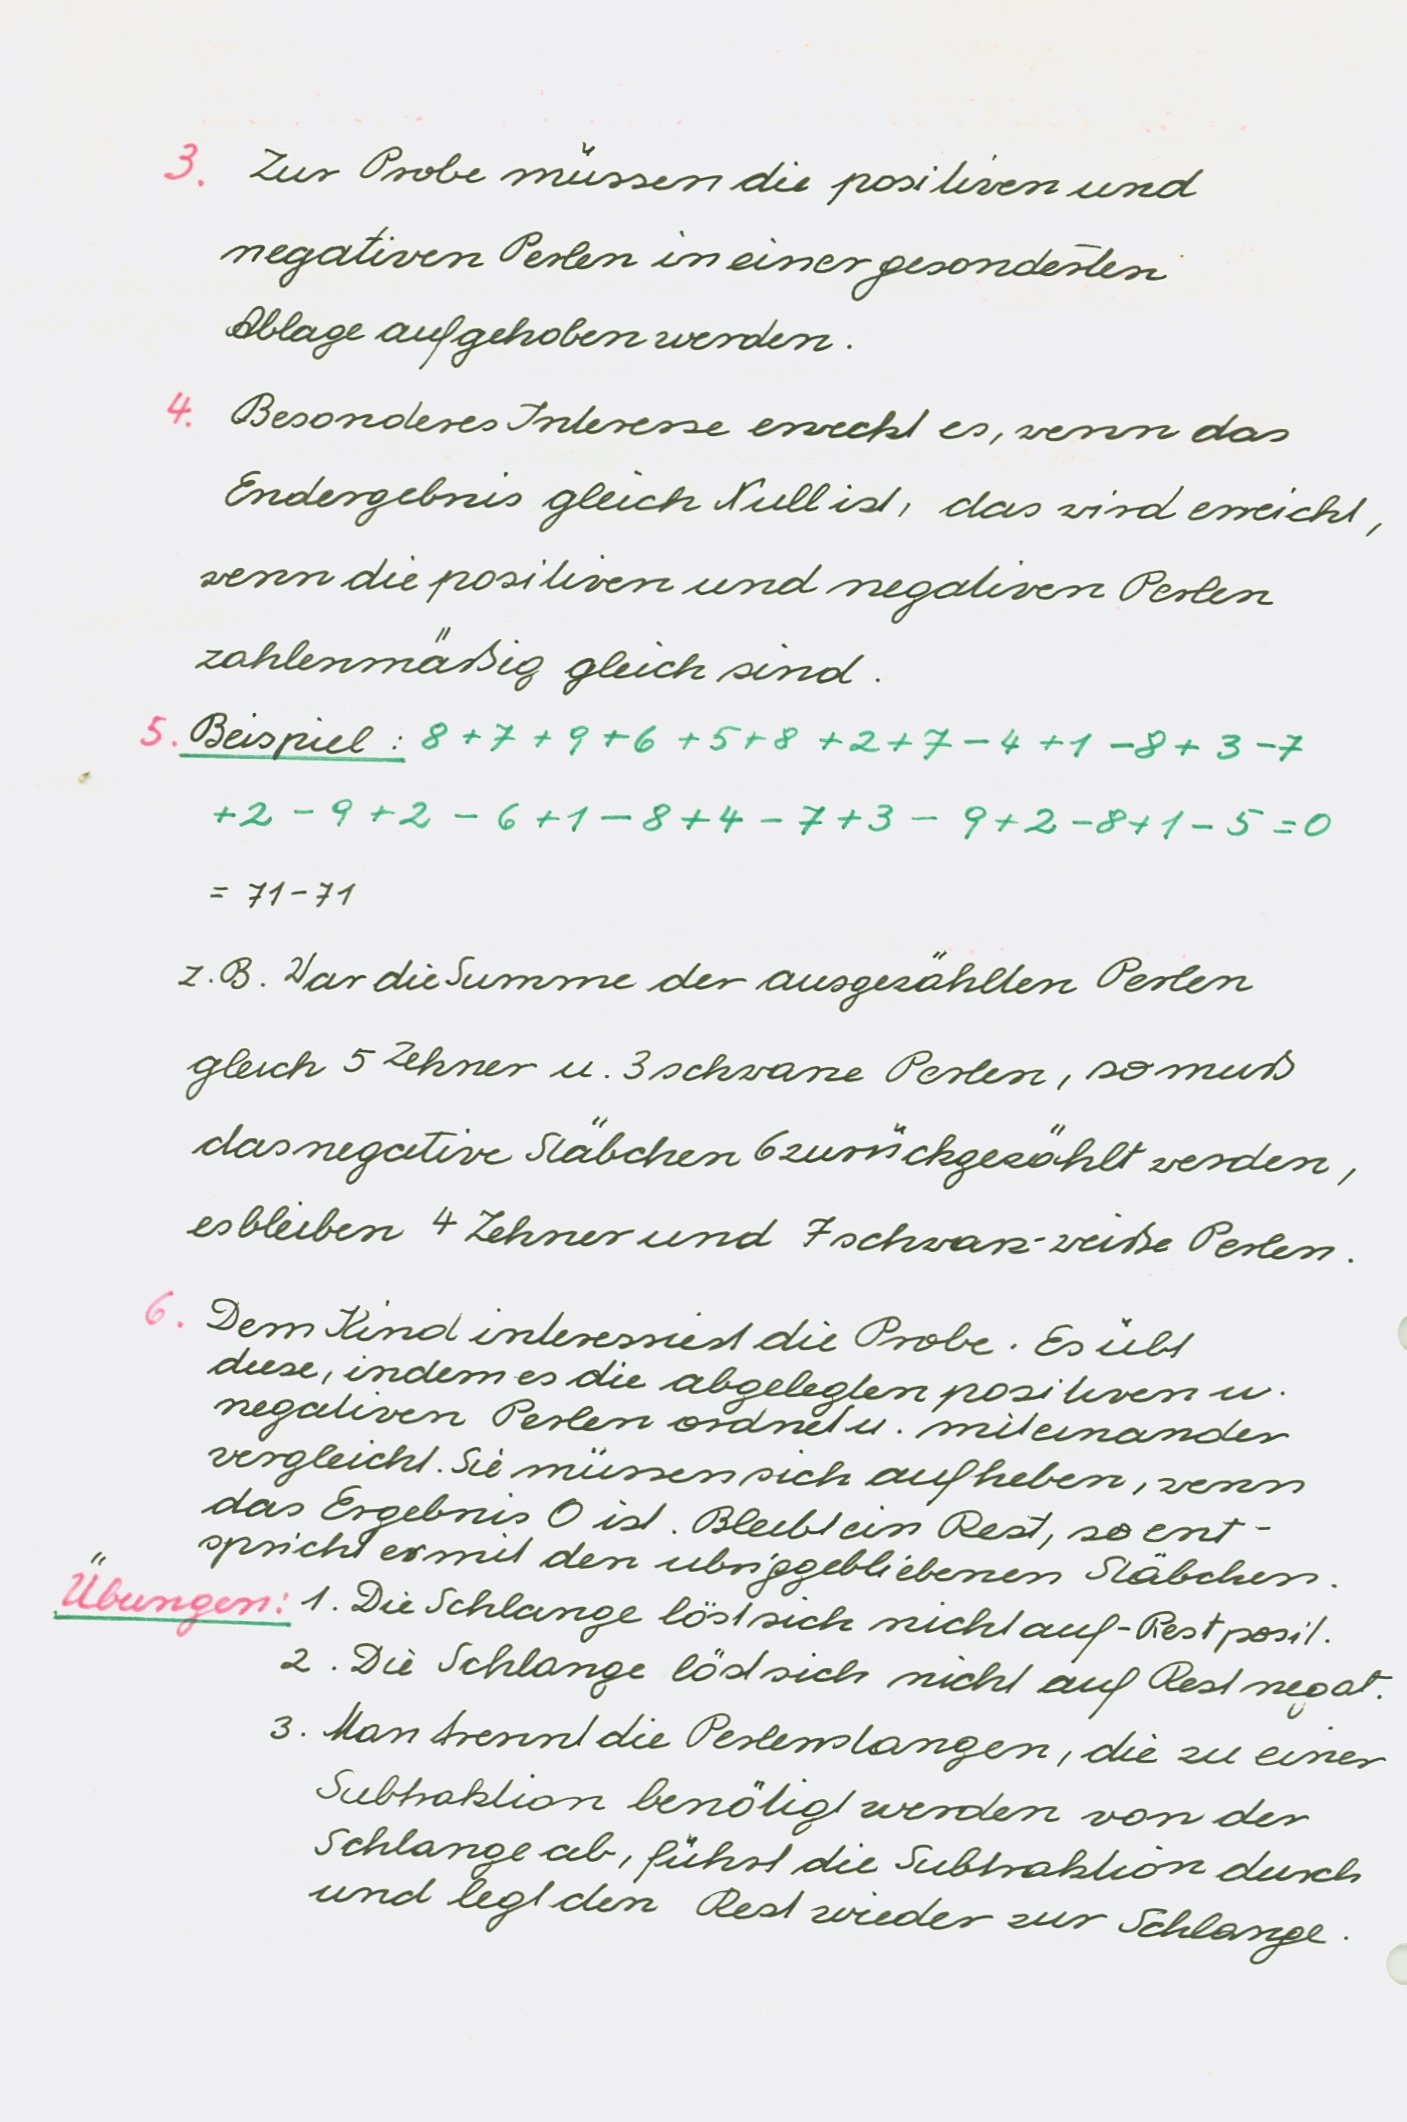 3. Zur Probe müssen die positiven und
negativen Perlen in einer gesonderten
Ablage aufgehoben werden.
4. Besonderes Interesse erweckt es, wenn das
Endergebnis gleich Null ist, das wird erreicht,
wenn die positiven und negativen Perlen
zahlenmäßig gleich sind.
5. Beispiel: 8+7+9+6+5+8+2+7-4+1-8+3-7
+2-9+2-6+1-8+4-7+3-9+2-8+1-5=0
= 71-71
z.B. War die Summe der ausgezählten Perlen
gleich 5 Zehner u. 3 schwarze Perlen, so muß
das negative Stäbchen 6 zurückgezählt werden,
es bleiben 4 Zehner und 7 schwarz-weiße Perlen.
6. Dem Kind interessiert die Probe. Es übt
diese, indem es die abgelegten positiven u.
negativen Perlen ordnet u. miteinander
vergleicht. Sie müssen sich aufheben, wenn
das Ergebnis 0 ist. Bleibt ein Rest, so ent-
spricht er mit den übriggebliebenen Stäbchen.
Übungen: 1. Die Schlange löst sich nicht auf - Rest posit.
2. Die Schlange löst sich nicht auf Rest negat.
3. Man trennt die Perlenstangen, die zu einer
Subtraktion benötigt werden von der
Schlange ab, führt die Subtraktion durch
und legt den Rest wieder zur Schlange.